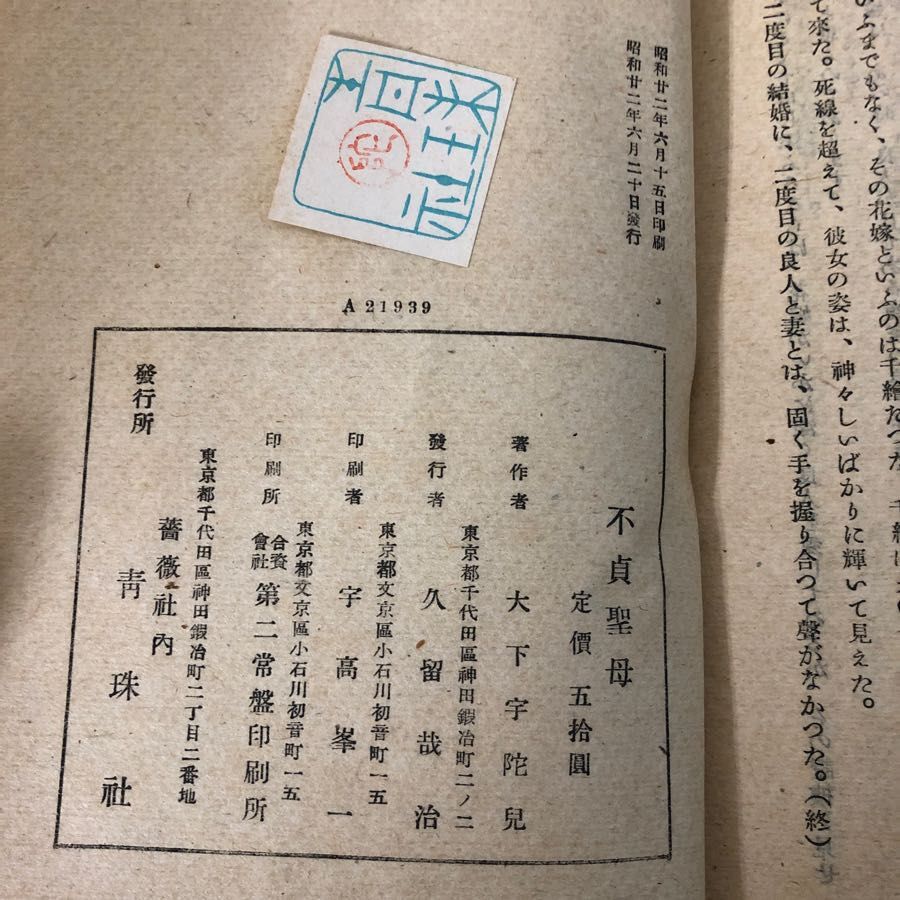 いふまでもなく、その花嫁といふのは千繪だつた
て來た。死線を超えて、彼女の姿は、神々しいばかりに輝いて見えた。
二度目の結婚に、二度目の良人と妻とは、固く手を握り合つて聲がなかつた。(終)
昭和廿二年六月十五日印刷
昭和廿二年六月二十日發行
A 21939
不貞聖母
定價 五拾圓
著作者 大下宇陀兒
東京都千代田區神田鍜冶町二ノ二
發行者 久留哉治
東京都文京區小石川初音町一五
印刷者 宇高峯一
東京都文京區小石川初音町一五
印刷所 合資會社 第二常盤印刷所
東京都千代田區神田鍜冶町二丁目二番地
薔薇社內
發行所 靑珠社